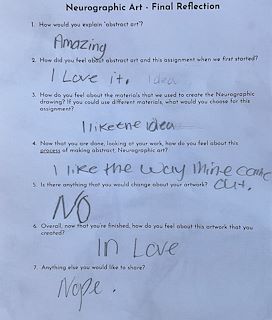 Neurographic Art - Final Reflection
1. How would you explain 'abstract art'?
Amazing
2. How did you feel about abstract art and this assignment when we first started?
I Love it. idea
3. How do you feel about the materials that we used to create the Neurographic
drawing? If you could use different materials, what would you choose for this
assignment?
I like the idea
4. Now that you're done, looking at your work, how do you feel about this
process of making abstract, Neurographic art?
I like the way mine came
5. Is there anything that you would change about your artwork? out.
NO
6. Overall, now that you're finished, how do you feel about this artwork that you
created?
In Love
7. Anything else you would like to share?
Nope.